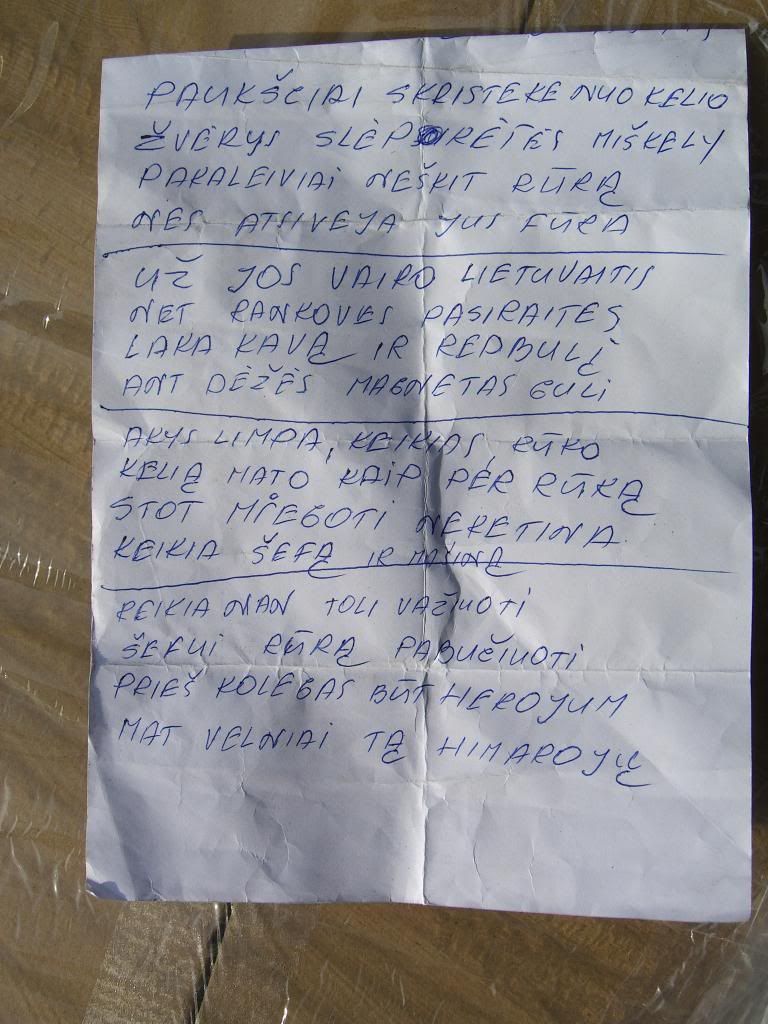 PAUKŠČIAI SKRISTEKE NUO KELIO
ŽVĖRYS SLĖPORĖTĖS MIŠKELY
PAKALEIVIAI NEŠKIT RŪRĄ
NES ATSIVEJA JUS FŪRA
UŽ JOS VAIRO LIETUVAITIS
NET RANKOVES PASIRAITĘS
LAKA KAVĄ IR REDBULĮ
ANT DĖŽĖS MAGNETAS GULI
AKYS LIMPA, KEIKIAS, RŪKO
KELIĄ MATO KAIP PER RŪKĄ
STOT MIEGOTI NEKETINA
KEIKIA ŠEFĄ IR MAŠINĄ
REIKIA MAN TOLI VAŽIUOTI
ŠEFUI RŪRĄ PABUČIUOTI
PRIEŠ KOLEGAS BŪT HEROJUM
MAT VELNIAI TĄ HIMAROJŲ